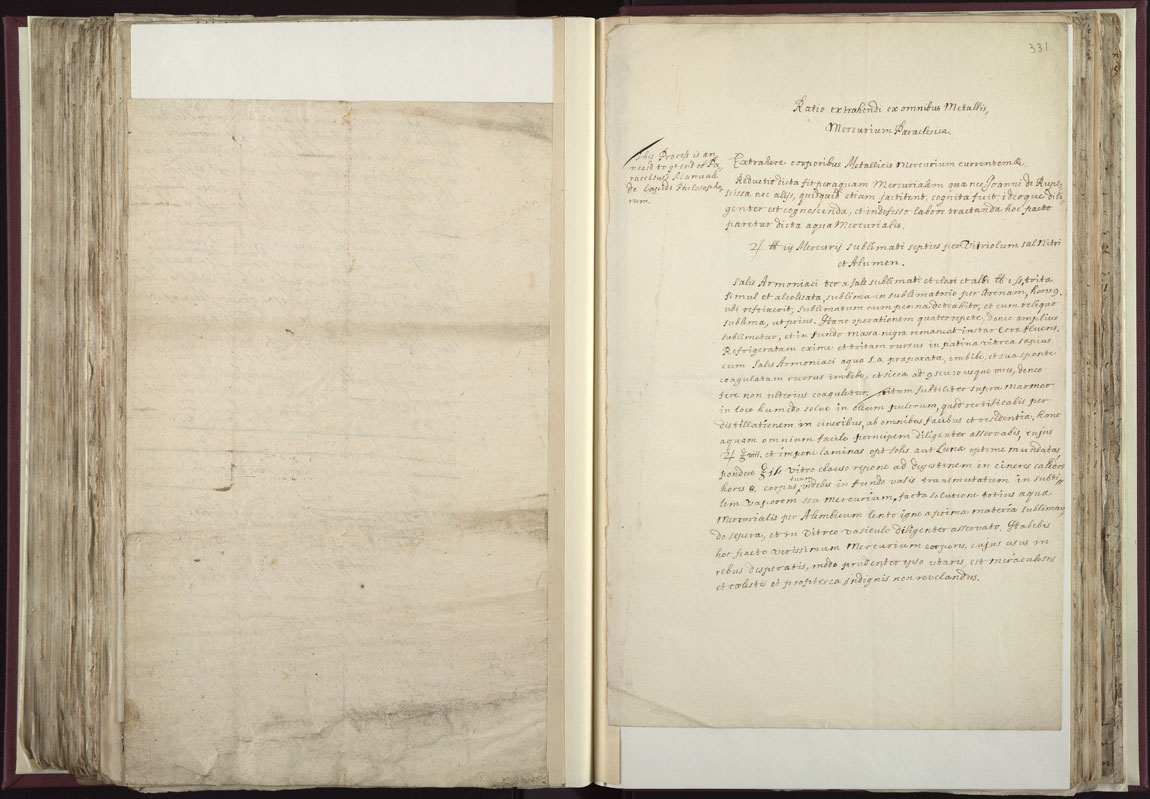 331
Ratio extrahendi ex omnibus Metallis,
Mercurium Paracelsica.
This Process is an
nexed to ye end of Pa
racelsus's Manuall
de Lapide Philosopho
rum.
Extrahere corporibus Metallicis Mercurium currentem &c.
Reductio dicta fit per aquam Mercurialem quæ nec Joanni de Rupe
scissa nec alijs, quidquid etiam jactitent, cognita fuit, ideoque dili
genter est cognoscenda, et indefesso labore tractanda hoc pacto
paretur dicta aqua Mercurialis.
℞ ℔ iij Mercurij sublimati septies per Vitriolum sal Nitri
et Alumen.
Salis Armoniaci ter a sale sublimati et clari et albi ℔ i ß, trita
simul et alcolisata, sublima in sublimatorio per Arenam, horis 9.
ubi refrixerit, sublimatum cum penna detrahito, et cum reliquo
sublima, ut prius. Hanc operationem quater repete, donec amplius
sublimetur, et in fundo massa nigra remaneat instar Ceræ fluens.
Refrigeratam exime et tritam rursus in patina vitrea sæpius
cum Salis Armoniaci aqua S.a. præparata, imbibe, et sua sponte
coagulatam rursus imbibe, et sicca ad usque vices, donec
fere non ulterius coaguletur, tritum subtiliter supra Marmor
in loco humido solve in oleum pulcrum, quod rectificabis per
distillationem in cineribus, ab omnibus fæcibus et residentia, hanc
aquam omnium facile principem diligenter asservabis, cujus
℞ ℥ viii, et impone laminas opt Solis aut Lunæ optime mundatas
pondere ℥ iß vitro clauso repone ad digestinem in cineres calidos
horis 8. corpus tum videbis in fundo vasis transmutatum in subti
lem vaporem seu Mercurium, facta solutione totius aqua
Mercurialis per Alembicum lento igne a prima materia subliman
do separa, et in vitreo vasiculo diligenter asservato. Habebis
hoc facto verissimum Mercurium corporis, cujus usus in
rebus desperatis, modo prudenter ipso utaris, est miraculosus
et cælestis et propterea Indignis non revelandus.